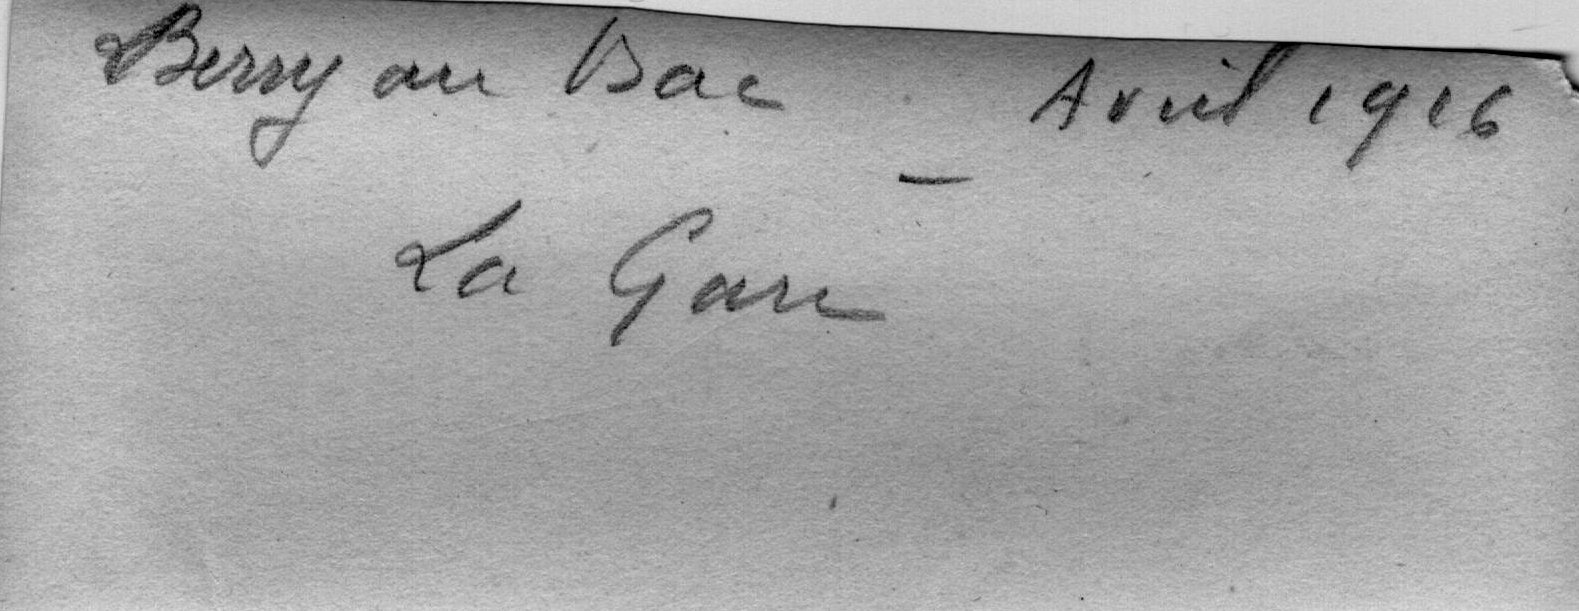 Berry au Bac - Avril 1916
La Gare